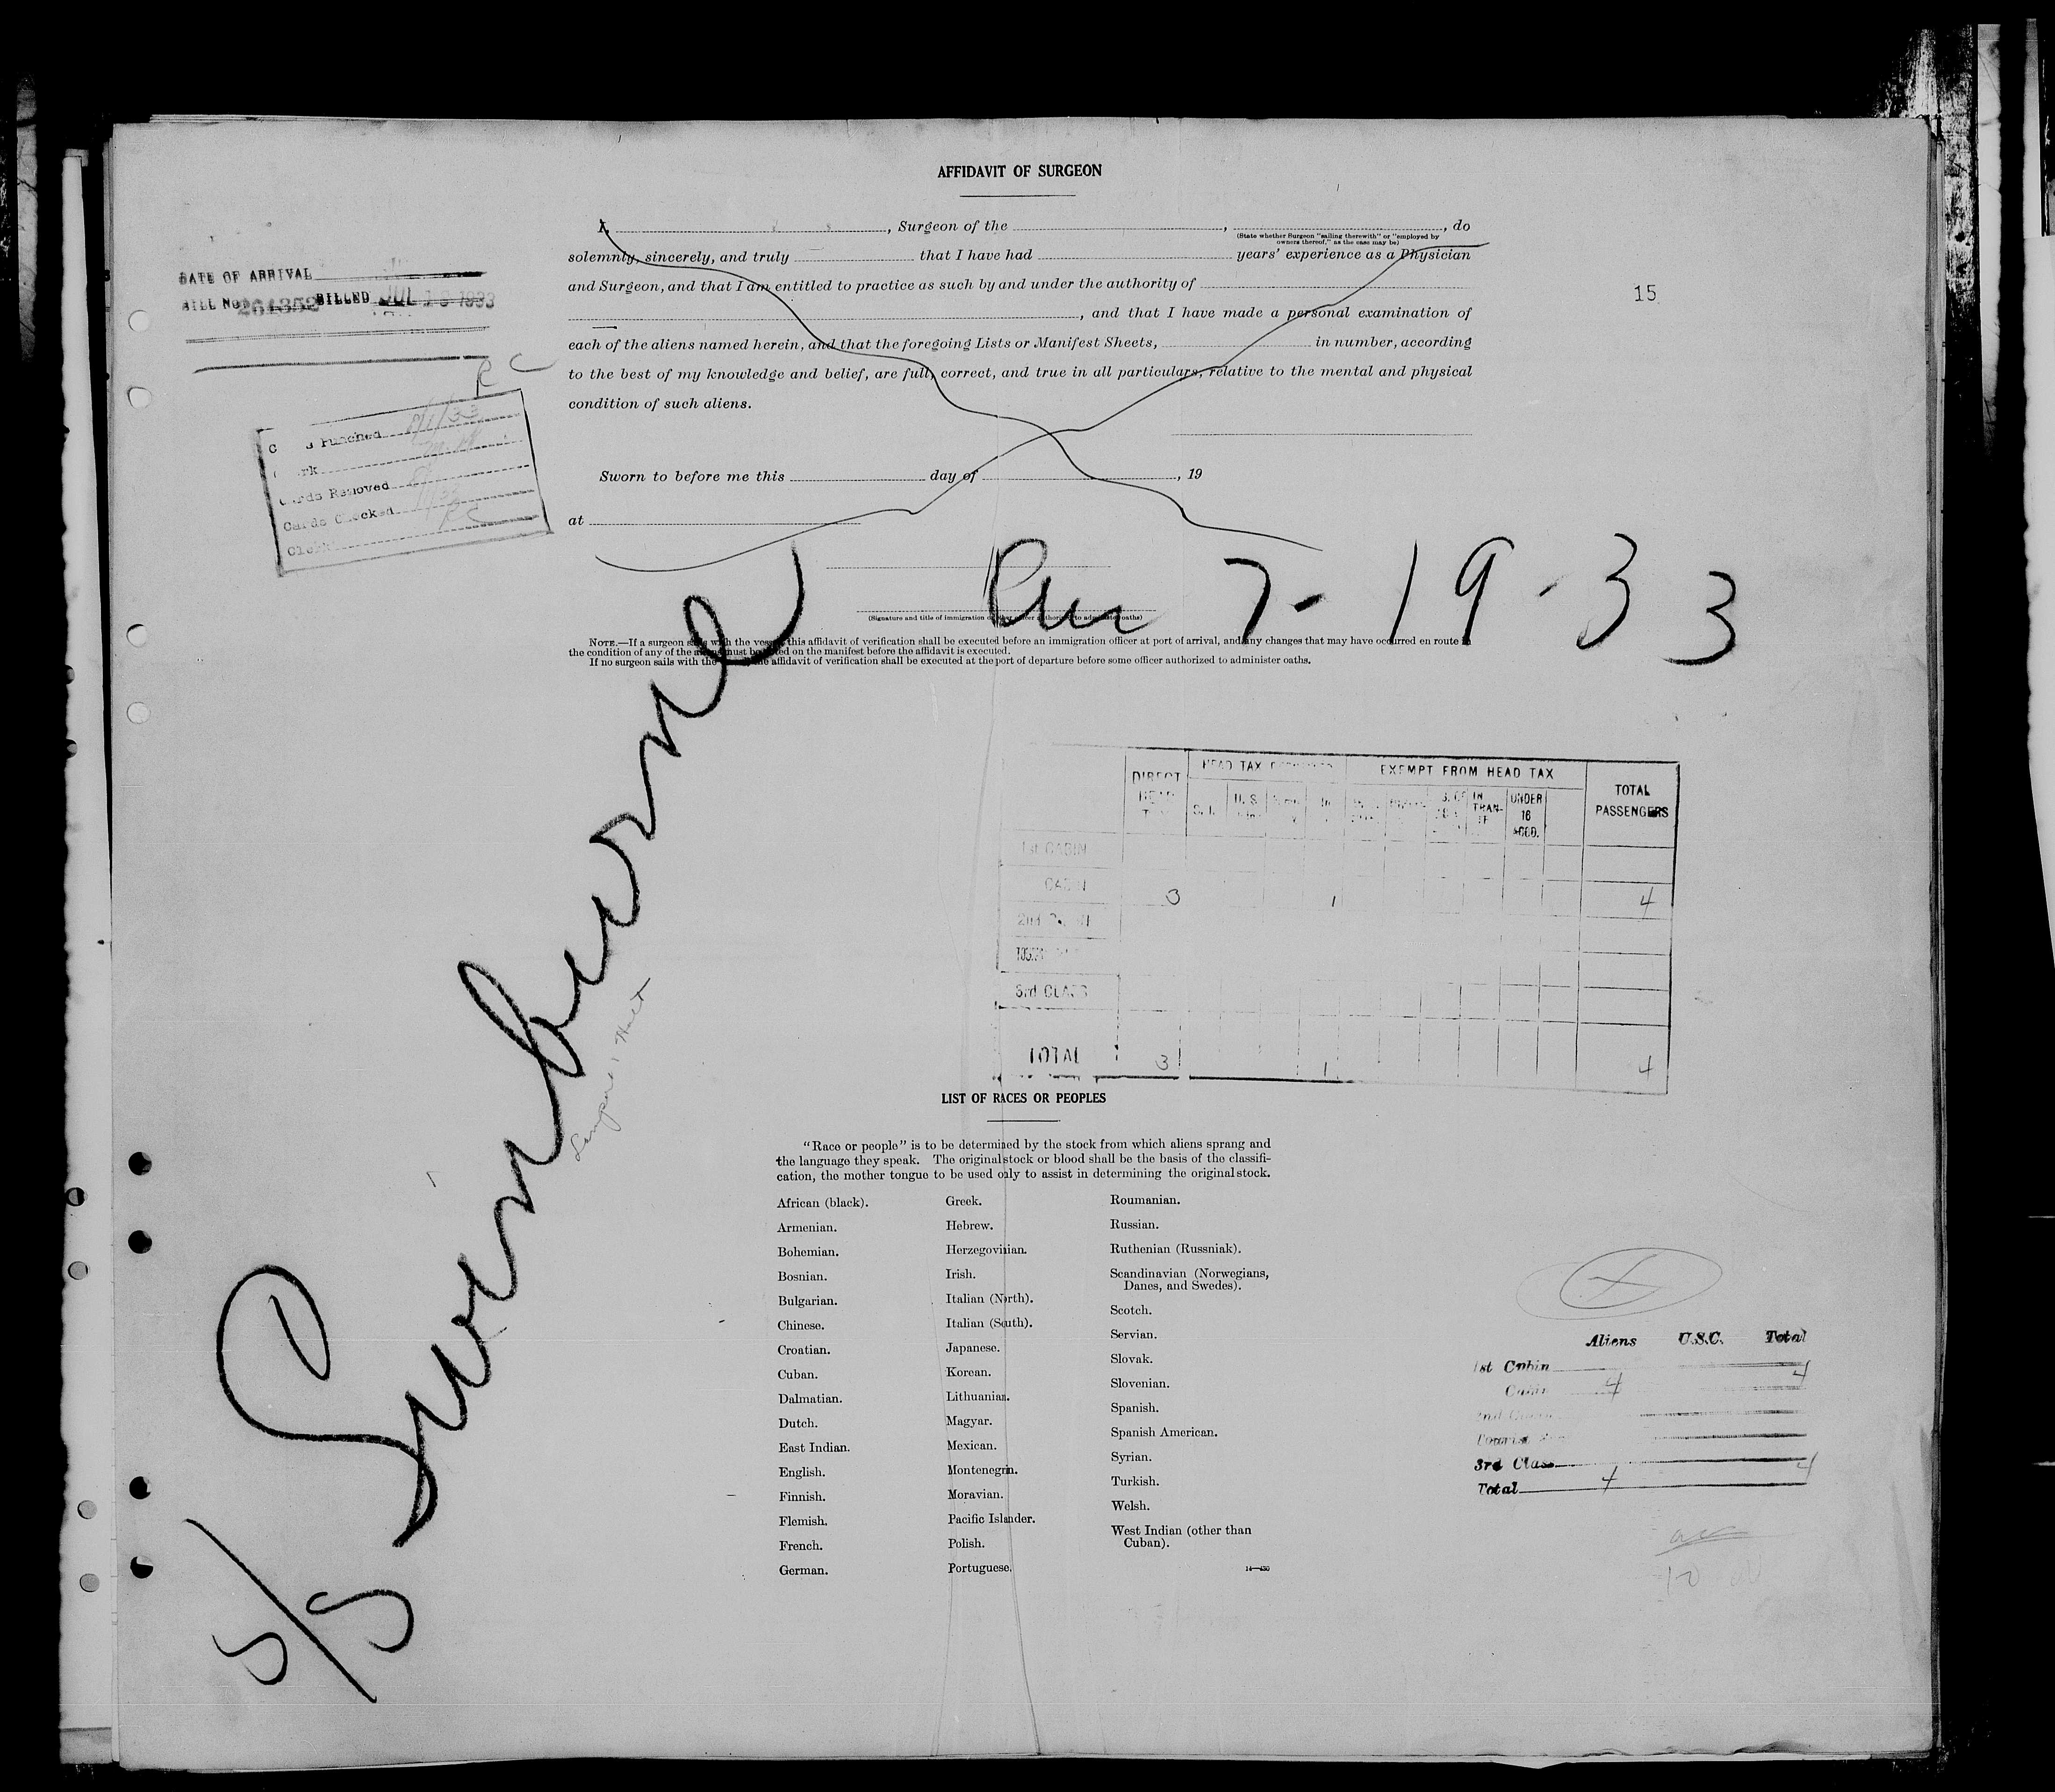 AFFIDAVIT OF SURGEON
I, , Surgeon of the , , do
(State whether Surgeon "sailing therewith" or "employed by
owners thereof," as the case may be)
solemnly, sincerely, and truly that I have had years' experience as a Physician
and Surgeon, and that I am entitled to practice as such by and under the authority of
, and that I have made a personal examination of
each of the aliens named herein, and that the foregoing Lists or Manifest Sheets, in number, according
to the best of my knowledge and belief, are full, correct, and true in all particulars, relative to the mental and physical
condition of such aliens.
Sworn to before me this day of , 19
at
DATE OF ARRIVAL
BILL No. BILLED JUL 19 1933
15
R C
Punched
Cards Removed
Cards Checked R C
Clerk
7-19-33
(Signature and title of immigration or other officer authorized to administer oaths)
NOTE.—If a surgeon sails with the vessel, this affidavit of verification shall be executed before an immigration officer at port of arrival, and any changes that may have occurred en route in
the condition of any of the aliens must be noted on the manifest before the affidavit is executed.
If no surgeon sails with the vessel, the affidavit of verification shall be executed at the port of departure before some officer authorized to administer oaths.
S/S Swinburne
DIRECT HEAD TAX
HEAD TAX
EXEMPT FROM HEAD TAX
TOTAL PASSENGERS
S.I. U.S. IN TRAN- UNDER 16 ACCD.
1st CABIN
CABIN 3 1 4
3rd CLASS
TOTAL 3 1 4
LIST OF RACES OR PEOPLES
"Race or people" is to be determined by the stock from which aliens sprang and
the language they speak. The original stock or blood shall be the basis of the classifi-
cation, the mother tongue to be used only to assist in determining the original stock.
African (black).
Armenian.
Bohemian.
Bosnian.
Bulgarian.
Chinese.
Croatian.
Cuban.
Dalmatian.
Dutch.
East Indian.
English.
Finnish.
Flemish.
French.
German.
Greek.
Hebrew.
Herzegovinian.
Irish.
Italian (North).
Italian (South).
Japanese.
Korean.
Lithuanian.
Magyar.
Mexican.
Montenegrin.
Moravian.
Pacific Islander.
Polish.
Portuguese.
Roumanian.
Russian.
Ruthenian (Russniak).
Scandinavian (Norwegians,
Danes, and Swedes).
Scotch.
Servian.
Slovak.
Slovenian.
Spanish.
Spanish American.
Syrian.
Turkish.
Welsh.
West Indian (other than
Cuban).
Aliens U.S.C. Total
1st Cabin 4
Cabin 4
2nd Cabin
Tourist
3rd Class 4
Total 4